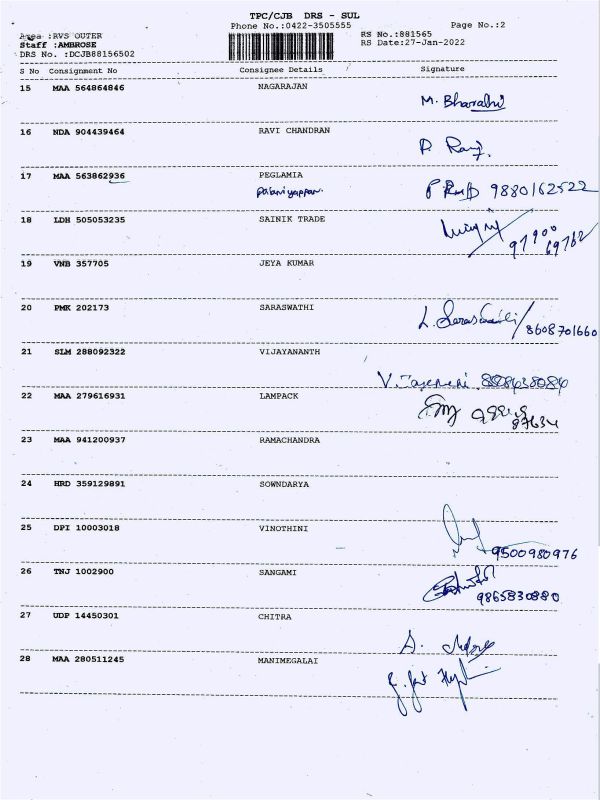 TPC/CJB DRS - SUL
Phone No.:0422-3505555 Page No.:2
Area :RVS OUTER RS No.:881565
Staff :AMBROSE RS Date:27-Jan-2022
DRS No. :DCJB88156502
S No Consignment No Consignee Details Signature
15 MAA 564864846 NAGARAJAN
M. Bharathi
16 NDA 904439464 RAVI CHANDRAN
P. Ravi
17 MAA 563862936 PEGLAMIA
Palaniyappan 9880162522
18 LDH 505053235 SAINIK TRADE
97900
69762
19 VNB 357705 JEYA KUMAR
20 PMK 202173 SARASWATHI
L. Saraswathi/8608701660
21 SLM 288092322 VIJAYANANTH
22 MAA 279616931 LAMPACK
87634
23 MAA 941200937 RAMACHANDRA
24 HRD 359129891 SOWNDARYA
25 DPI 10003018 VINOTHINI
9500980976
26 TNJ 1002900 SANGAMI
9865830880
27 UDP 14450301 CHITRA
28 MAA 280511245 MANIMEGALAI